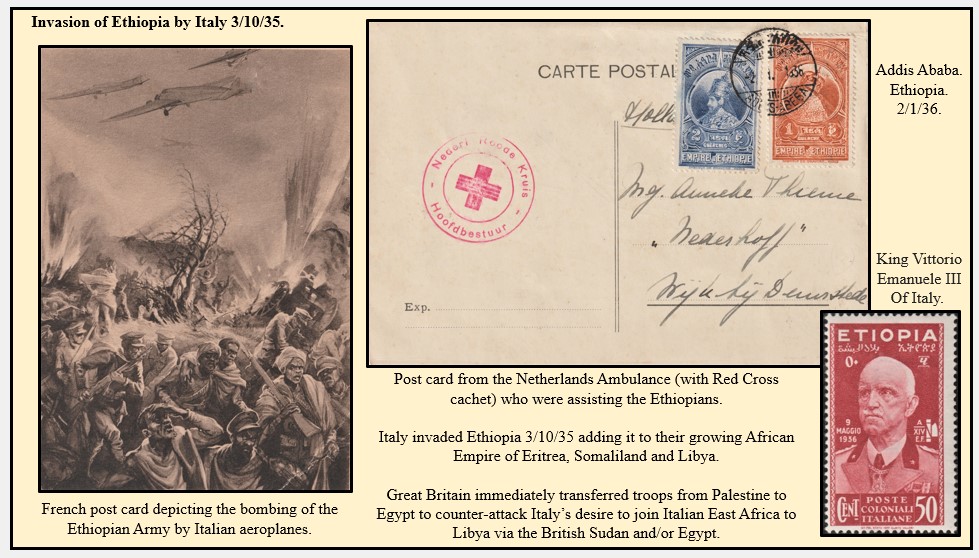 Invasion of Ethiopia by Italy 3/10/35.
CARTE POSTAL
Nederl Roode Kruis
Hoofdbestuur
Exp.
2
EMPIRE D'ETHIOPIE
1
EMPIRE D'ETHIOPIE
Mej. Anneke Thieme
Wijk bij Duurstede
Addis Ababa.
Ethiopia.
2/1/36.
King Vittorio
Emanuele III
Of Italy.
ETIOPIA
9
MAGGIO
1936
A
XIV
E.F.
CENT
POSTE
COLONIALI
ITALIANE
50
French post card depicting the bombing of the
Ethiopian Army by Italian aeroplanes.
Post card from the Netherlands Ambulance (with Red Cross
cachet) who were assisting the Ethiopians.
Italy invaded Ethiopia 3/10/35 adding it to their growing African
Empire of Eritrea, Somaliland and Libya.
Great Britain immediately transferred troops from Palestine to
Egypt to counter-attack Italy’s desire to join Italian East Africa to
Libya via the British Sudan and/or Egypt.